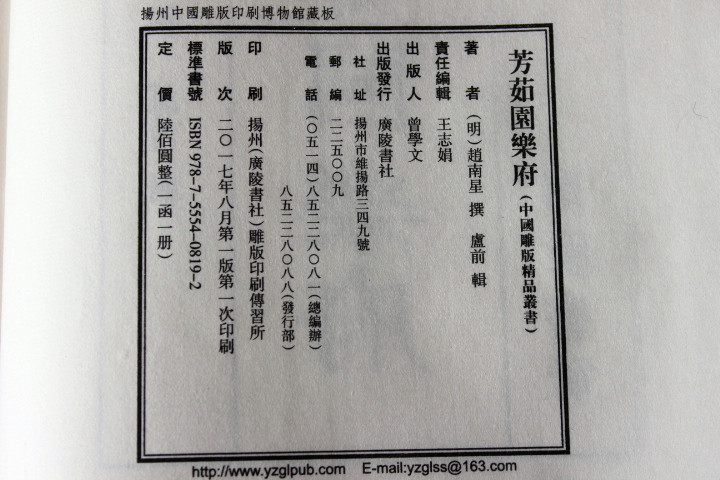 揚州中國雕版印刷博物館藏板
芳茹園樂府(中國雕版精品叢書)
著 者 (明)趙南星 撰 盧前 輯
責任編輯 王志娟
出版人 曾學文
出版發行 廣陵書社
社 址 揚州市維揚路三四九號
郵 編 二二五〇〇九
電 話 (〇五一四)八五二二八〇八一(總編辦)
八五二二八〇八八(發行部)
印 刷 揚州(廣陵書社)雕版印刷傳習所
版 次 二〇一七年八月第一版第一次印刷
標準書號 ISBN 978-7-5554-0819-2
定 價 陸佰圓整(一函一册)
http://www.yzglpub.com E-mail:yzglss@163.com